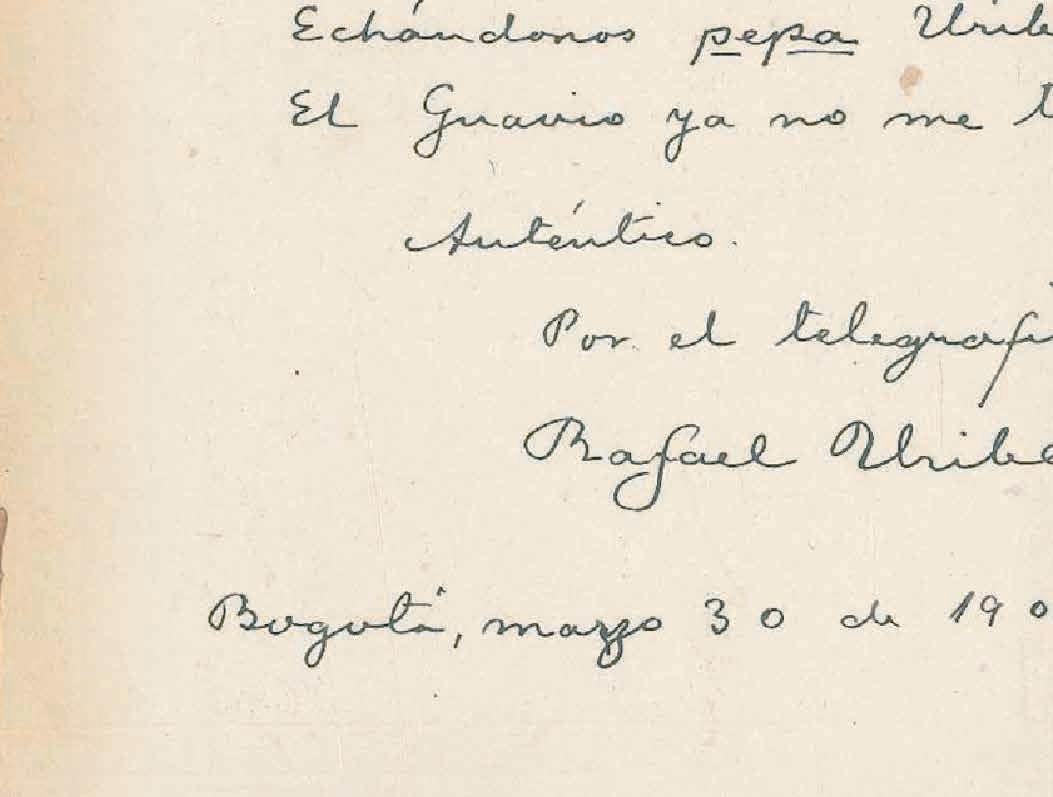 Echándonos pepa Uribe
El Guavio ya no me t
Auténtico.
Por el telegrafi
Rafael Uribe
Bogotá, marzo 30 de 190